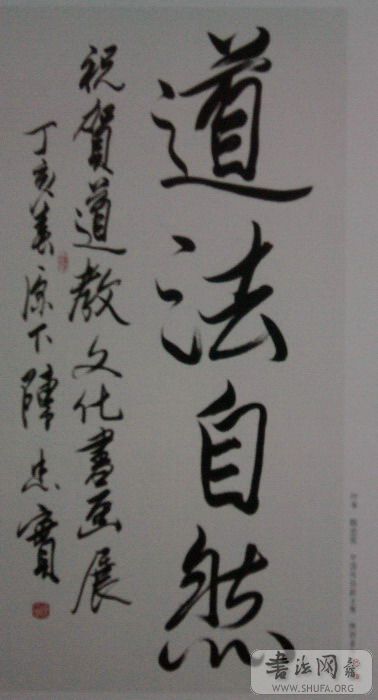 道法自然
祝賀道教文化書画展
丁亥原下陳忠實
書法网
WWW.SHUFA.ORG